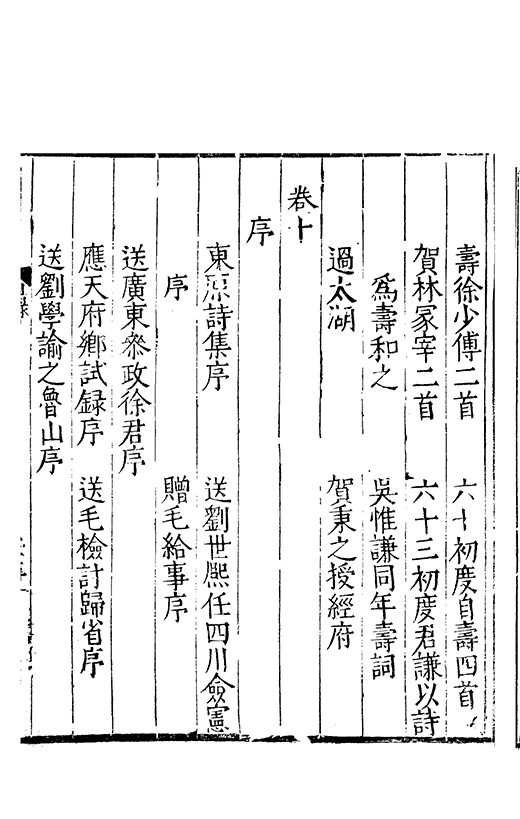 壽徐少傅二首　六十初度自壽四首
賀林冢宰二首　六十三初度君謙以詩
為壽和之　吳惟謙同年壽詞
過太湖　賀秉之授經府
卷十
序
東源詩集序　送劉世熙任四川僉憲
序　贈毛給事序
送廣東叅政徐君序
應天府鄉試録序　送毛檢討歸省序
送劉學諭之魯山序